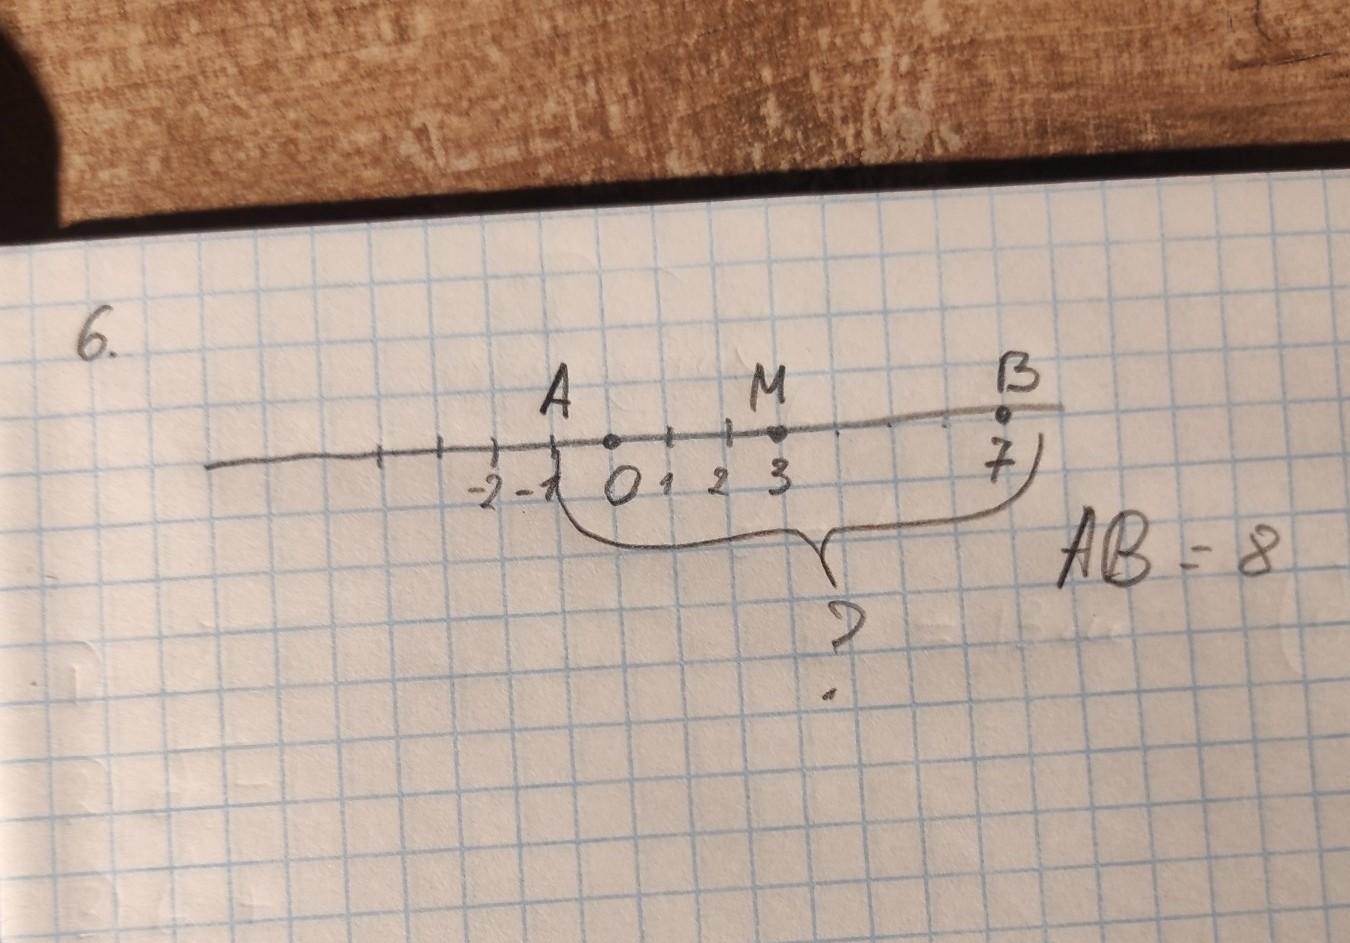 6.
A M B
-2 -1 0 1 2 3 7
AB = 8
?